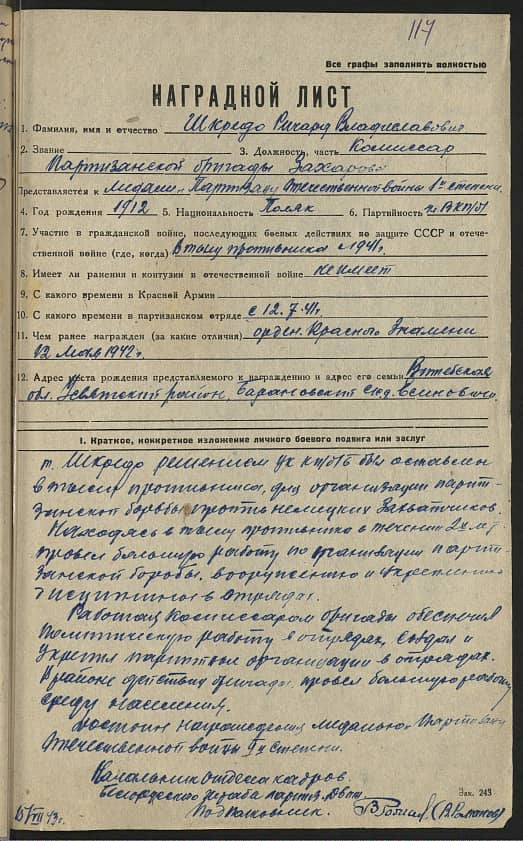 117
Все графы заполнять полностью
НАГРАДНОЙ ЛИСТ
1. Фамилия, имя и отчество Шкредо Ричард Владиславович
2. Звание 3. Должность, часть Комиссар
Партизанской бригады Захарова
Представляется к медали "Партизану Отечественной войны 1й степени
4. Год рождения 1912 5. Национальность Поляк 6. Партийность чл. ВКП/б/
7. Участие в гражданской войне, последующих боевых действиях по защите СССР и отече-
ственной войне (где, когда) В тылу противника с 1941г.
8. Имеет ли ранения и контузии в отечественной войне не имеет
9. С какого времени в Красной Армии
10. С какого времени в партизанском отряде с 12.7.41г.
11. Чем ранее награжден (за какие отличия) орден. Красного Знамени
12 мая 1942г.
12. Адрес места рождения представляемого к награждению и адрес его семьи Витебская
обл. район, Барановский с/с д.
I. Краткое, конкретное изложение личного боевого подвига или заслуг
т. Шкредо решением ЦК КП/б/Б был оставлен
в тылу противника, для организации парти-
занской борьбы против немецких захватчиков.
Находясь в тылу противника в течении 2х лет
провел большую работу по организации парти-
занской борьбы, вооружению и укреплению
дисциплины в отрядах.
Работая комиссаром бригады обеспечил
политическую работу в отрядах, создал и
укрепил партийные организации в отрядах.
В районе действия бригады провел большую работу
среди населения.
Достоин награждения медалью "Партизану
Отечественной войны 1й степени.
Начальник отдела кадров
Белорусского штаба партиз. движ.
Подполковник (В. Романов)
Зак. 243
15/VII 43г.